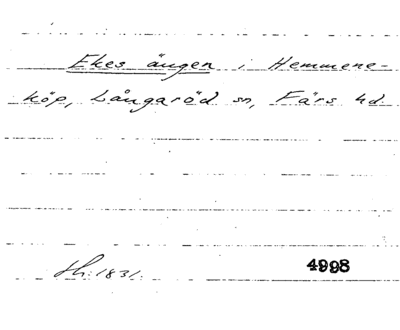 Ekes ängen i Hemmene-
köp, Långaröd sn, Färs hd.
Sk: 1831. 4998